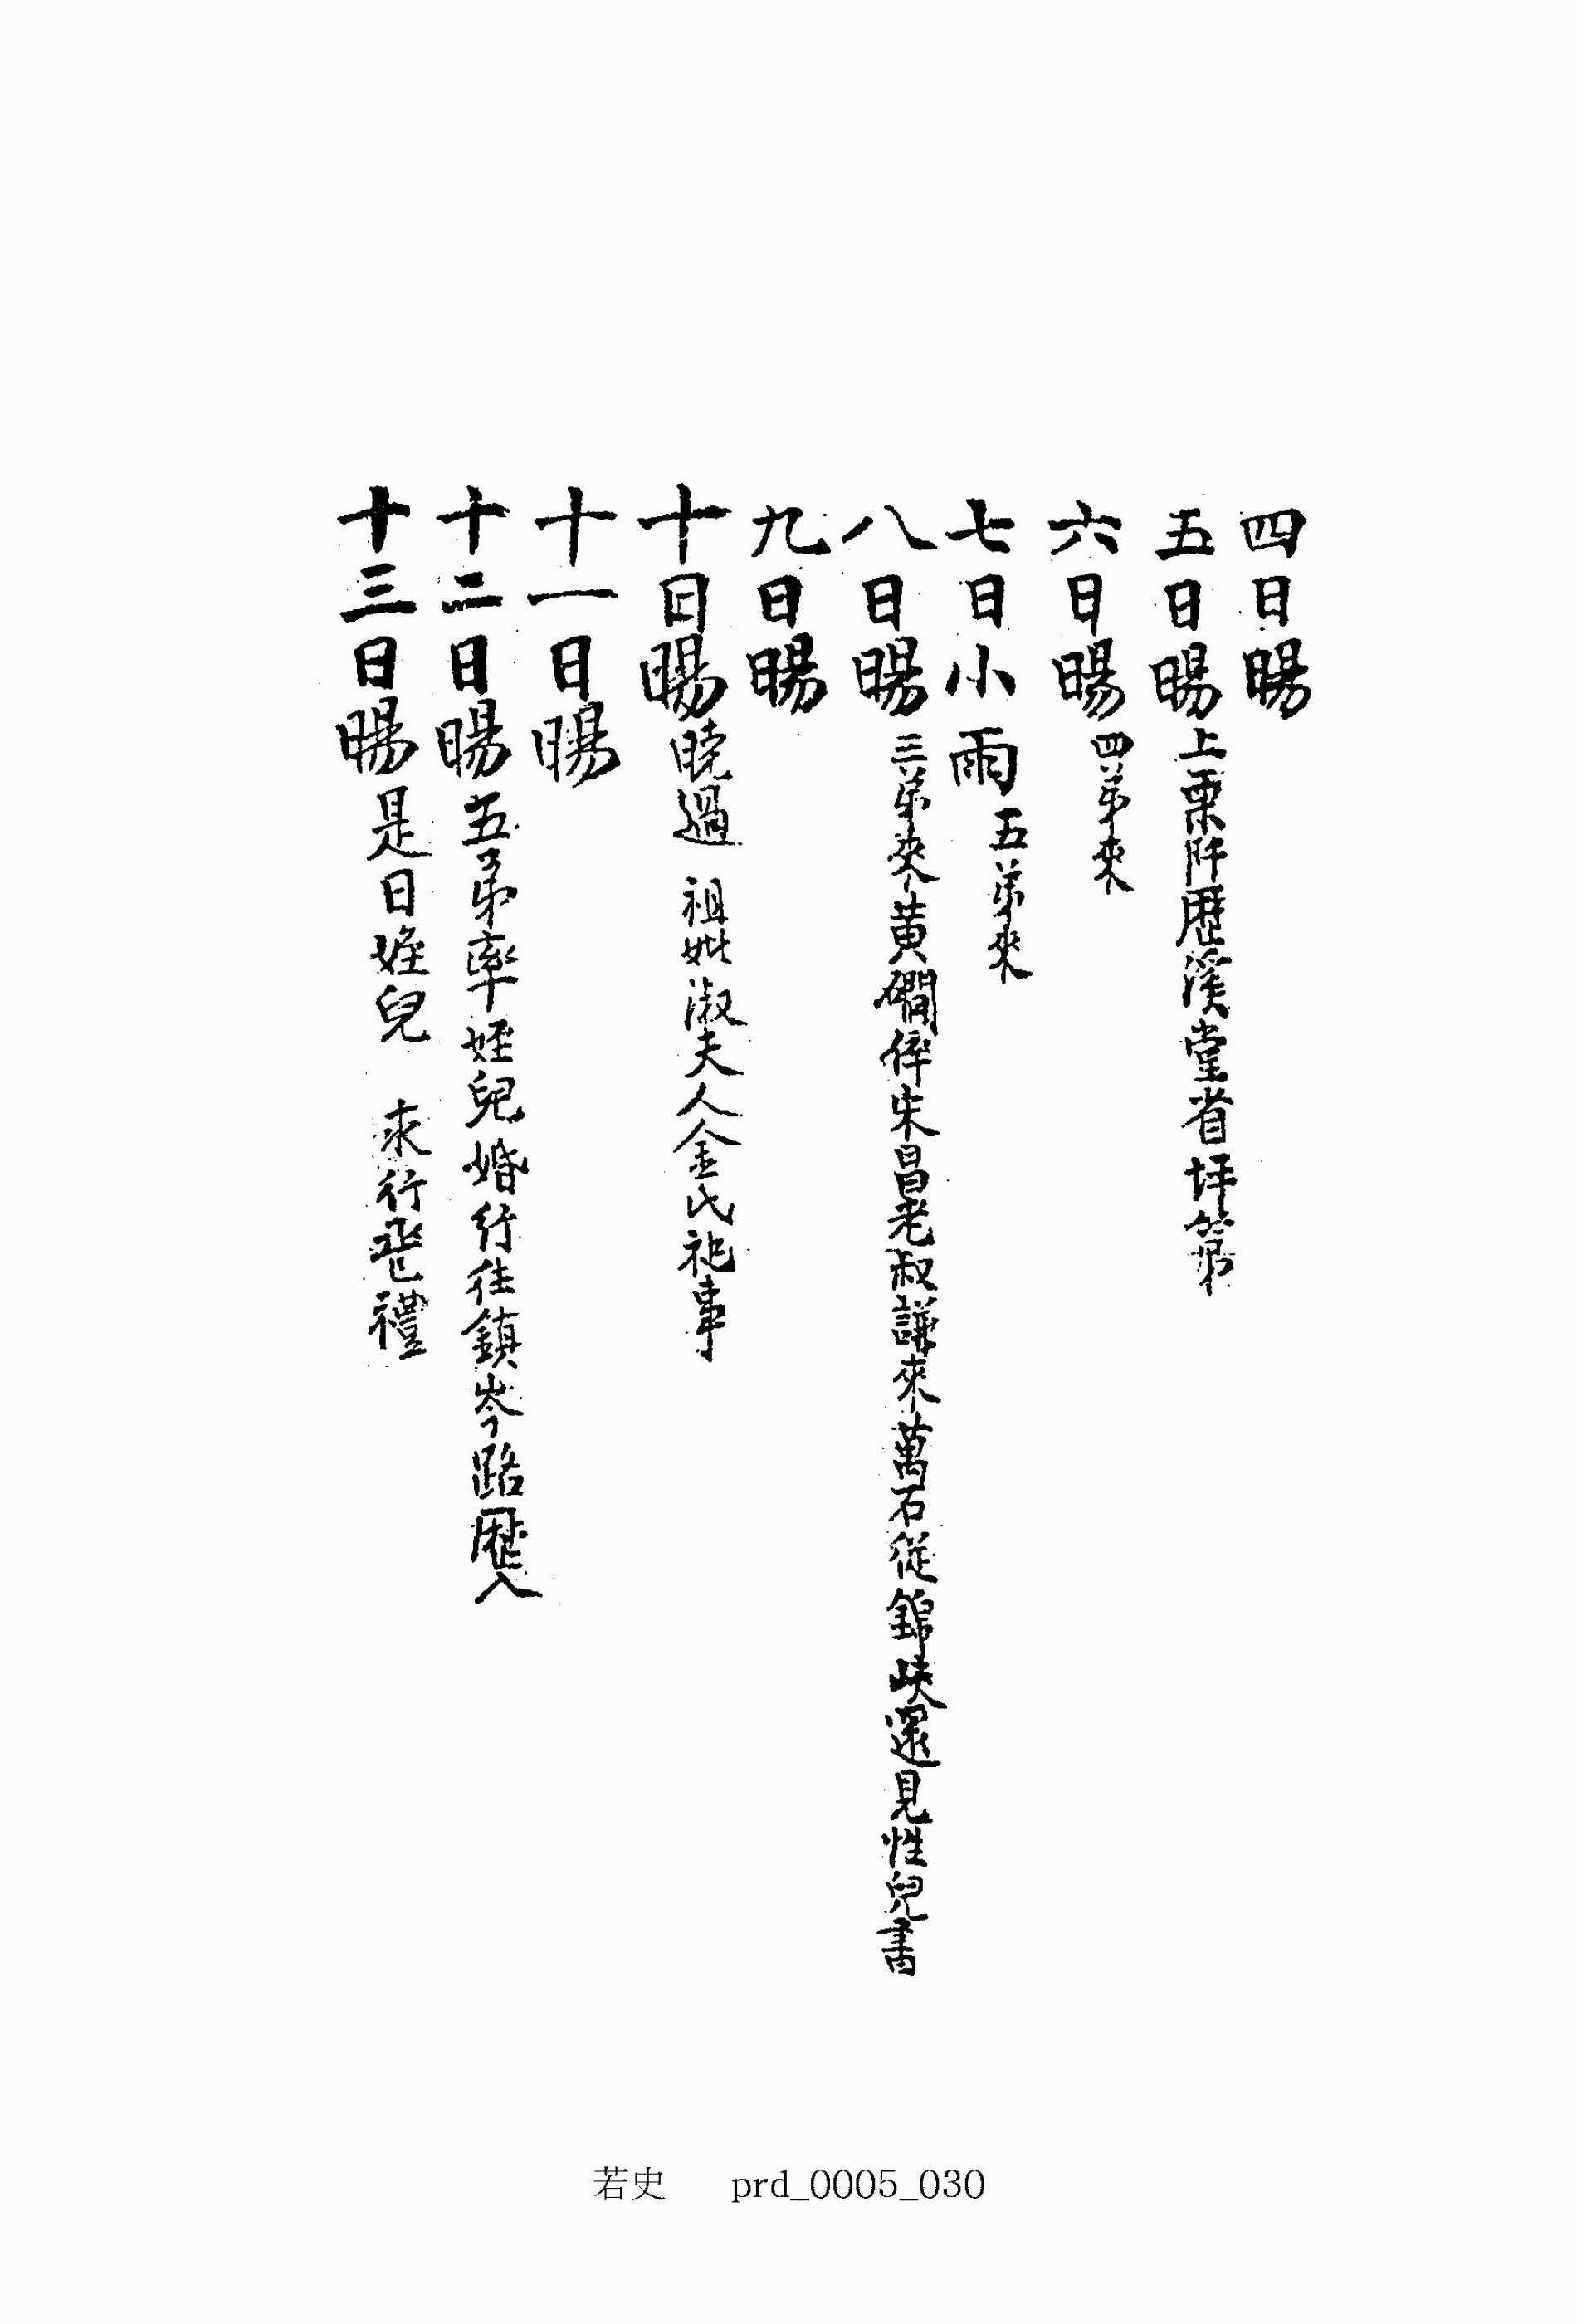 四日暘
五日暘 上栗阡歷溪堂省坪第
六日暘 四弟來
七日小雨 五弟來
八日暘 三弟來黃磵倅朱昌老叔謙來萬石從錦峽還見性兒書
九日暘
十日暘 曉過 祖妣淑夫人金氏祀事
十一日暘
十二日暘 五弟率姪兒婚行往鎭岑路歷入
十三日暘 是日姪兒 求行醮禮
若史 prd_0005_030